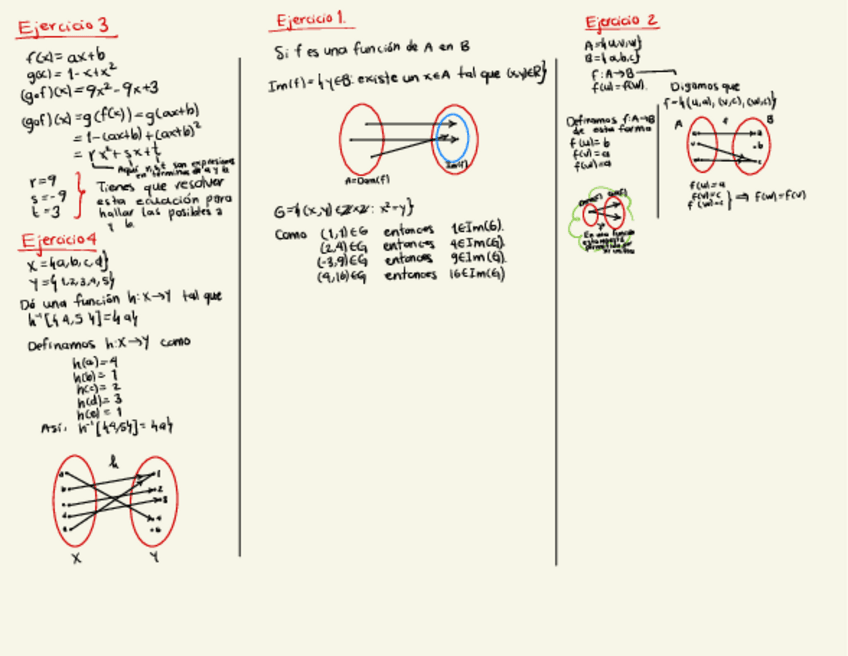 Ejercicio 3
f(x) = ax+b
g(x) = 1-x+x²
(gof)(x) = 9x²-9x+3
(gof)(x) = g(f(x)) = g(ax+b)
= 1-(ax+b)+(ax+b)²
= rx²+sx+t
Aquí r,s,t son expresiones
en términos de a y b
r=9
s=-9
t=3
Tienes que resolver
esta ecuación para
hallar las posibles a
y b
Ejercicio 4
X={a,b,c,d}
Y={1,2,3,4,5}
Dé una función h: X→Y tal que
h⁻¹[{4,5}]={a}
Definamos h: X→Y como
h(a)=4
h(b)=1
h(c)=2
h(d)=3
h(e)=1
Así, h⁻¹[{4,5}]={a}
h
1
2
3
4
X Y
Ejercicio 1.
Si f es una función de A en B
Im(f)={y∈B: existe un x∈A tal que (x,y)∈R}
Im(f)
A=Dom(f)
G={(x,y)∈Z×Z: x²=y}
Como (1,1)∈G entonces 1∈Im(G).
(2,4)∈G entonces 4∈Im(G).
(-3,9)∈G entonces 9∈Im(G).
(4,16)∈G entonces 16∈Im(G)
Ejercicio 2
A={u,v,w}
B={a,b,c}
f: A→B
f(u)=f(w).
Definamos f: A→B
de esta forma
f(u)=b
f(v)=a
f(w)=a
En una función
Digamos que
f={(u,a), (v,c), (w,c)}
A f B
a
b
c
f(u)=a
f(v)=c
f(w)=c
⇒ f(w)=f(v)